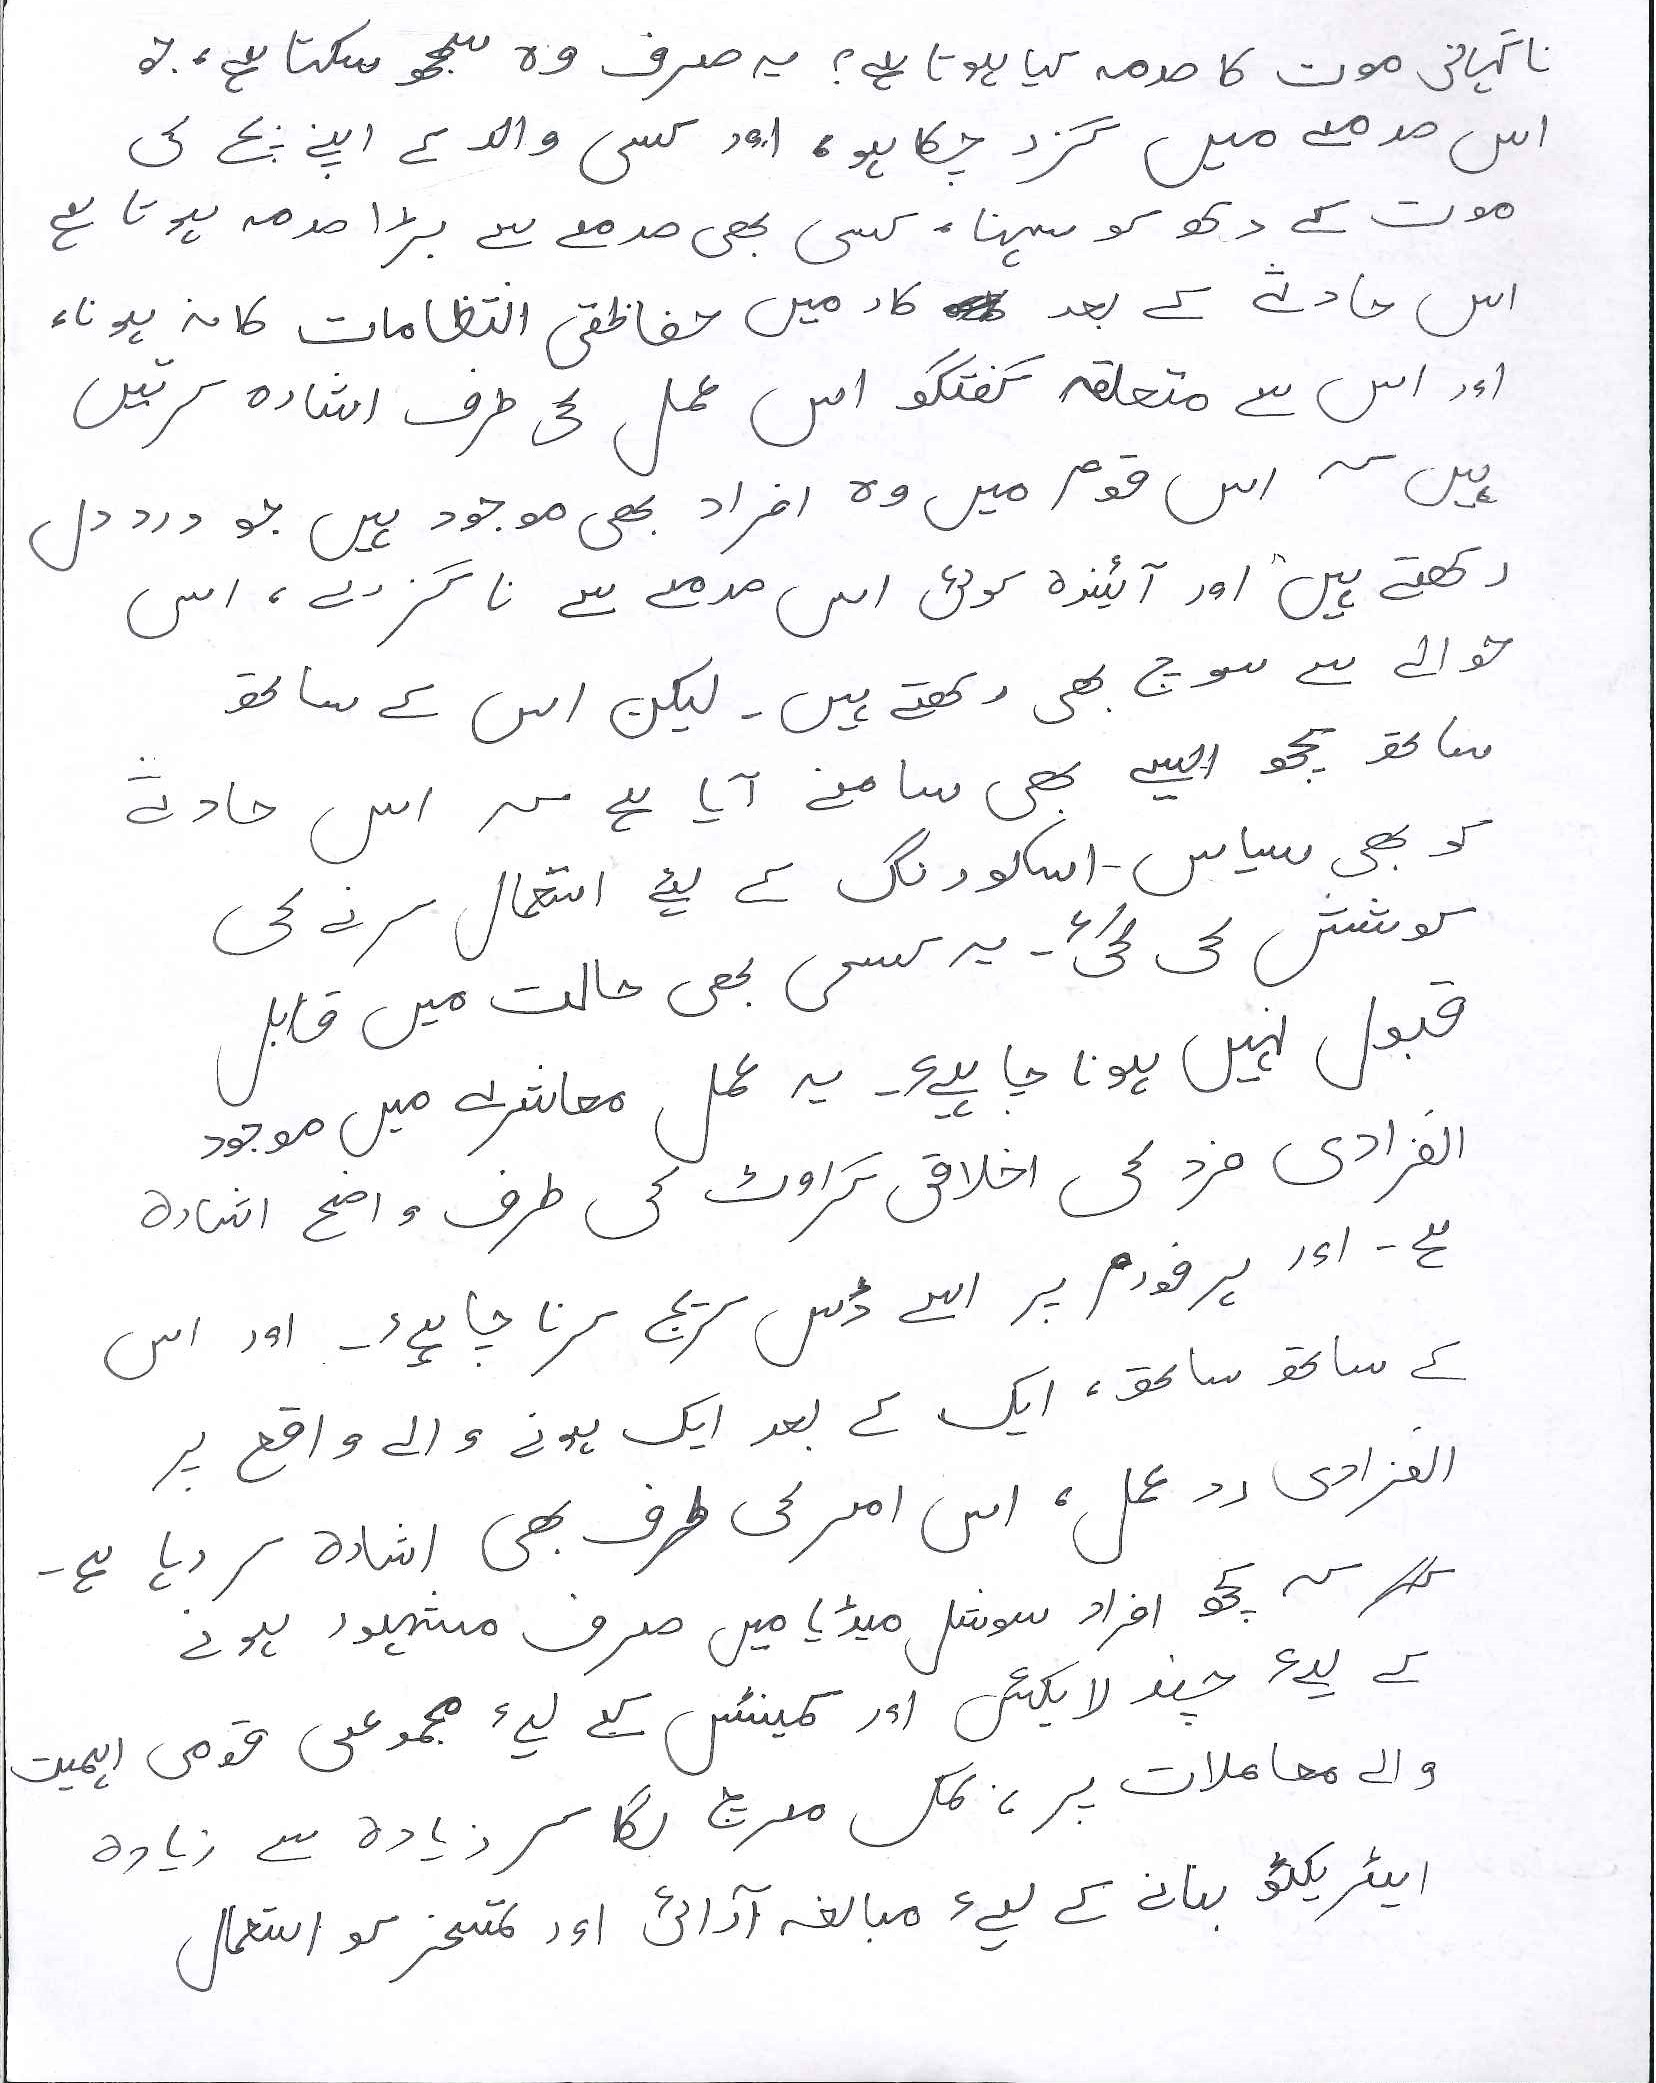 ناگہانی موت کا صدمہ کیا ہوتا ہے؟ یہ صرف وہ سمجھ سکتا ہے، جو
اس صدمے میں گزر چکا ہو، اور کسی والد کے اپنے بچے کی
موت کے دکھ کو سہنا، کسی بھی صدمے سے بڑا صدمہ ہوتا ہے
اس حادثے کے بعد کار میں حفاظتی انتظامات کا نہ ہونا،
اور اس سے متعلقہ گفتگو اس عمل کی طرف اشارہ کرتیں
ہیں کہ اس قوم میں وہ افراد بھی موجود ہیں جو درد دل
رکھتے ہیں اور آئیندہ کوئی اس صدمے سے نا گزرے، اس
حوالے سے سوچ بھی رکھتے ہیں۔ لیکن اس کے ساتھ
ساتھ کچھ ایسے بھی سامنے آیا ہے کہ اس حادثے
کو بھی سیاسی اسکورنگ کے لیئے استعمال کرنے کی
کوشش کی گئی۔ یہ کسی بھی حالت میں قابل
قبول نہیں ہونا چاہیے۔ یہ عمل معاشرے میں موجود
انفرادی فرد کی اخلاقی گراوٹ کی طرف واضح اشارہ
ہے۔ اور ہر فورم پر اسے ڈس کریج کرنا چاہیئے۔ اور اس
کے ساتھ ساتھ، ایک کے بعد ایک ہونے والے واقع پر
انفرادی رد عمل، اس امر کی طرف بھی اشارہ کر رہا ہے۔
کہ کچھ افراد سوشل میڈیا میں صرف مشہور ہونے
کے لیے چند لائیکس اور کمینٹس کے لیے مجموعی قومی اہمیت
والے معاملات پر، نمک مرچ لگا کر زیادہ سے زیادہ
ایٹریکٹو بنانے کے لیے مبالغہ آرائی اور تمسخر کو استعمال